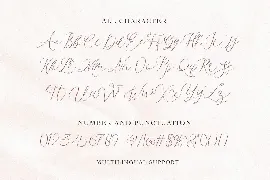 ALL CHARACTER
Aa Bb Cc Dd Ee Ff Gg Hh Ii Jj
Kk Ll Mm Nn Oo Pp Qq Rr Ss
Tt Uu Vv Ww Xx Yy Zz
NUMBER AND PUNCTUATION
MULTILINGUAL SUPPORT